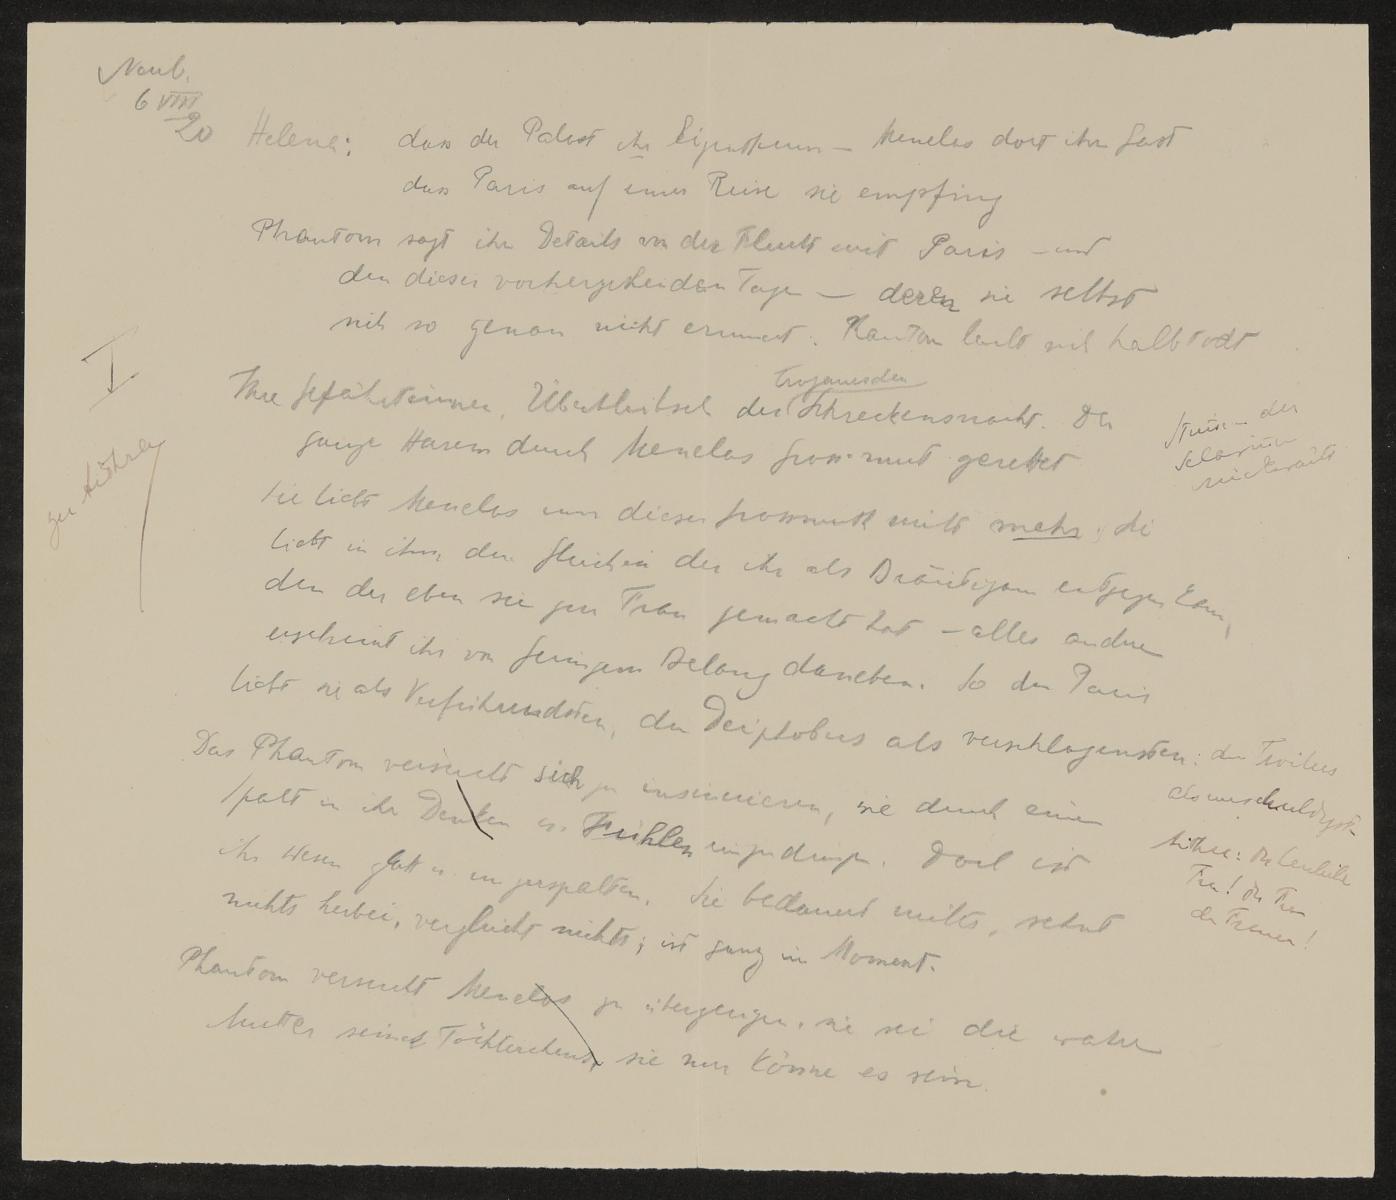 Naub.
6 VIII
20
Helena: dass der Palast ihr Eigenthum – Menelas dort ihr Gast
dass Paris auf einer Reise sie empfing
Phantom sagt ihr Details von der Flucht mit Paris – und
den dieser vorhergehenden Tagen – deren sie selbst
sich so genau nicht erinnert. Phantom lacht sich halbtodt
I
zur Äthra
Ihre Gefährtinnen, Überbleibsel der trojanischen Schreckensnacht. Der
ganze Harem durch Menelas Grossmut gerettet
der
Sclavin
Sie liebt Menelas um dieser Grossmuth nicht mehr; sie
liebt in ihm den Gleichen der ihr als Bräutigam entgegen kam,
den der eben sie zur Frau gemacht hat – alles andere
erscheint ihr von geringem Belang daneben. So den Paris
liebt sie als Verführendsten, den Deiphobus als verschlagensten: den Troilus
als unschuldigst
Das Phantom versucht sich zu insinuieren, sie durch einen
Spalt in ihr Denken u. Fühlen einzudringen. Doch ist
ihr Wesen glatt u. unzerspalten. Sie bedauert nichts, sehnt
nichts herbei, vergleicht nichts; ist ganz im Moment.
Äthra: die
Frau! die Frau
der Frauen!
Phantom versucht Menelas zu überzeugen, sie sei die wahre
Mutter seines Töchterchens, sie nur könne es sein.